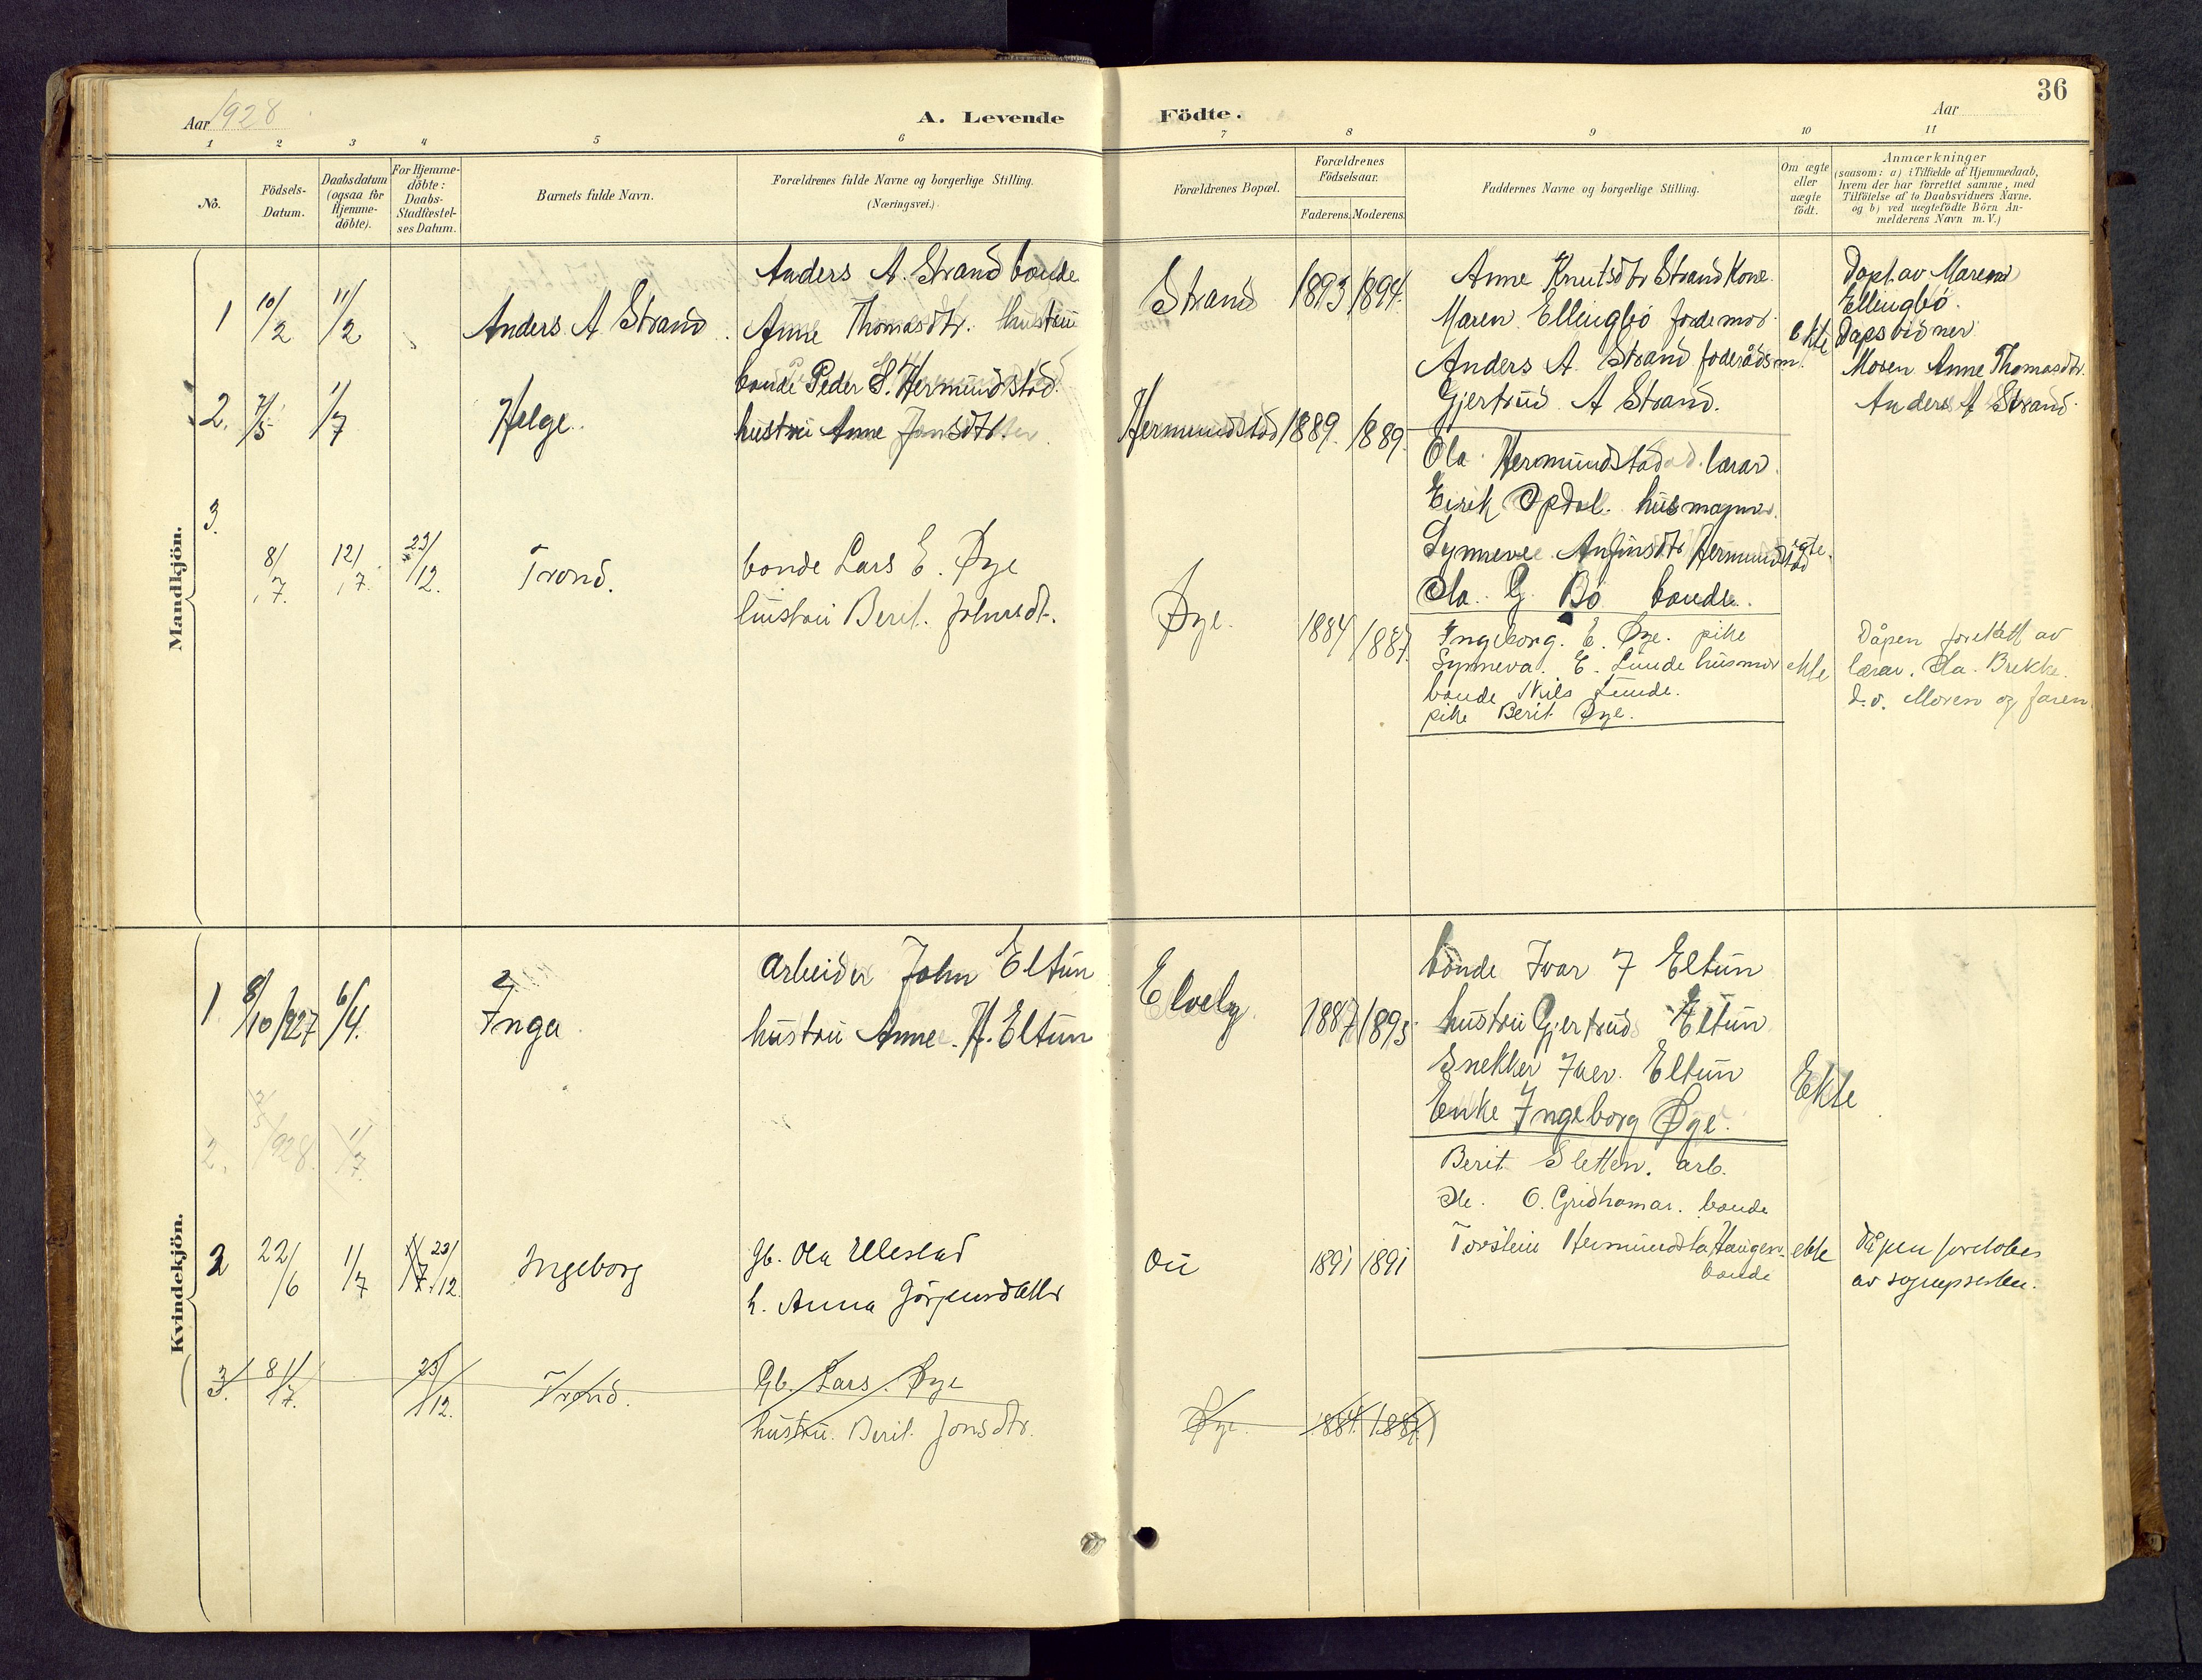 36
Aar 1928
A. Levende Födte.
Aar
1 2 3 4 5 6 7 8 9 10 11
No.
Födsels-
Datum.
Daabsdatum
(ogsaa för
Hjemme-
döbte).
For Hjemme-
döbte:
Daabs-
Stadfæstel-
ses Datum.
Barnets fulde Navn.
Forældrenes fulde Navne og borgerlige Stilling.
(Næringsvei.)
Forældrenes Bopæl.
Forældrenes
Födselsaar.
Faderens. Moderens.
Faddernes Navne og borgerlige Stilling.
Om ægte
eller
uægte
födt.
Anmærkninger
(saasom: a) i Tilfælde af Hjemmedaab,
hvem der har forrettet samme, med
Tilföielse af to Daabsvidners Navne,
og b) ved uægtefödte Börn An-
melderens Navn m. V.)
Mandkjön.
1 10/2 11/2 Anders A Strand
Anders A. Strand bonde
Anne Thomasdtr. hustru
Strand 1893 1894.
Anne Knutsdtr Strand Kone.
Maren Ellingbö
Anders A. Strand föderådsm.
Gjertrud A Strand.
ekte
Döpt av Maren
Ellingbö.
Dåpsvidner
Moren Anne Thomasdtr.
Anders A Strand
2. 7/5 1/7 Helge.
bonde Peder S. Hermundstad.
hustru Anne Jonsdtr.
Hermundstad 1889. 1889.
Ola Hermundstad lærar.
Eirik Opdal. husmann.
Synneve Anfinsdtr Hermundstad
Ola G. Bö bonde.
ekte.
3. 8/7. 12/7. 23/12. Trond.
bonde Lars E. Øye
hustru Berit. Johnsdt.
Øye. 1884 1887.
Ingeborg. E. Øye. pike
Synneva. E. Lunde husmor
bonde Nils Lunde.
pike Berit Øye.
ekte
Dåpen forettatt av
lærar. Ola. Brekke.
d.v. Moren og faren
Kvindekjön.
1 8/10 1927 6/4. 2 Inga
Arbeider John Eltun
hustru Anne. H. Eltun
Elvely 1887 1893
bonde Ivar J Eltun
hustru Gjertrud Eltun
Snekker Iver. Eltun
Enke Ingeborg Øye.
Ekte
2. 7/5 1928. 1/7.
2 22/6 1/7 1/7 23/12. Ingeborg
Gb. Ola Ellestad
h. Anna Görjensdatter
1891 1891
Berit Sletten. arb.
Ole. O. Gridhamar. bonde
Torstein Hermundsta Haugen
bonde
ekte
Dåpen
av sogneprsten.
3. 8/7. 23/12. Trond.
Gb. Lars. Øye
hustru. Berit Jonsdtr.
Øye. 1884. 1887.